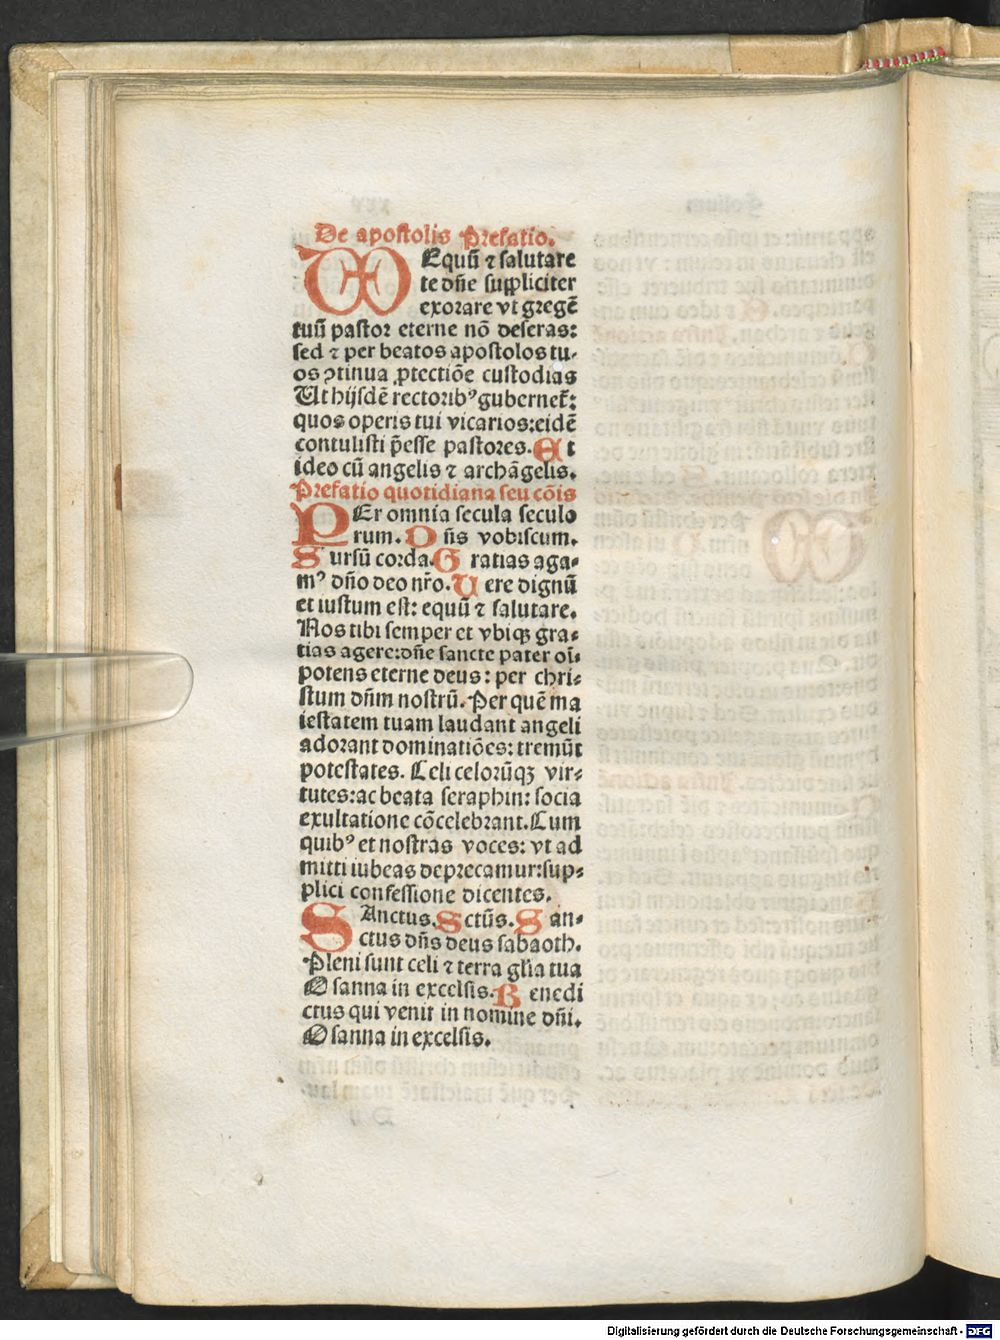 De apostolis Prefatio.
Equũ ⁊ salutare
te dñe suppliciter
exorare vt gregẽ
tuũ pastor eterne nõ deseras:
sed ⁊ per beatos apostolos tu⸗
os ↄtinua ꝓtectiõe custodias
Ut hijsdẽ rectoribꝰ gubernet᷑:
quos operis tui vicarios: eidẽ
contulisti p̃esse pastores. Et
ideo cũ angelis ⁊ archãgelis.
Prefatio quotidiana seu cõis
PEr omnia secula seculo
rum. Dñs vobiscum.
Sursũ corda. Gratias aga⸗
mꝰ dño deo nr̃o. Uere dignũ
et iustum est: equũ ⁊ salutare.
Nos tibi semper et vbiqꝫ gra⸗
tias agere: dñe sancte pater oĩ⸗
potens eterne deus: per chri⸗
stum dñm nostrũ. Per quẽ ma
iestatem tuam laudant angeli
adorant dominatiões: tremũt
potestates. Celi celorũqꝫ vir⸗
tutes: ac beata seraphin: socia
exultatione cõcelebrant. Cum
quibꝰ et nostras voces: vt ad
mitti iubeas deprecamur: sup⸗
plici confessione dicentes.
SAnctus. Sctũs. San⸗
ctus dñs deus sabaoth.
Pleni sunt celi ⁊ terra gl̃ia tua
Osanna in excelsis. Benedi
ctus qui venit in nomine dñi.
Osanna in excelsis.
Digitalisierung gefördert durch die Deutsche Forschungsgemeinschaft - DFG